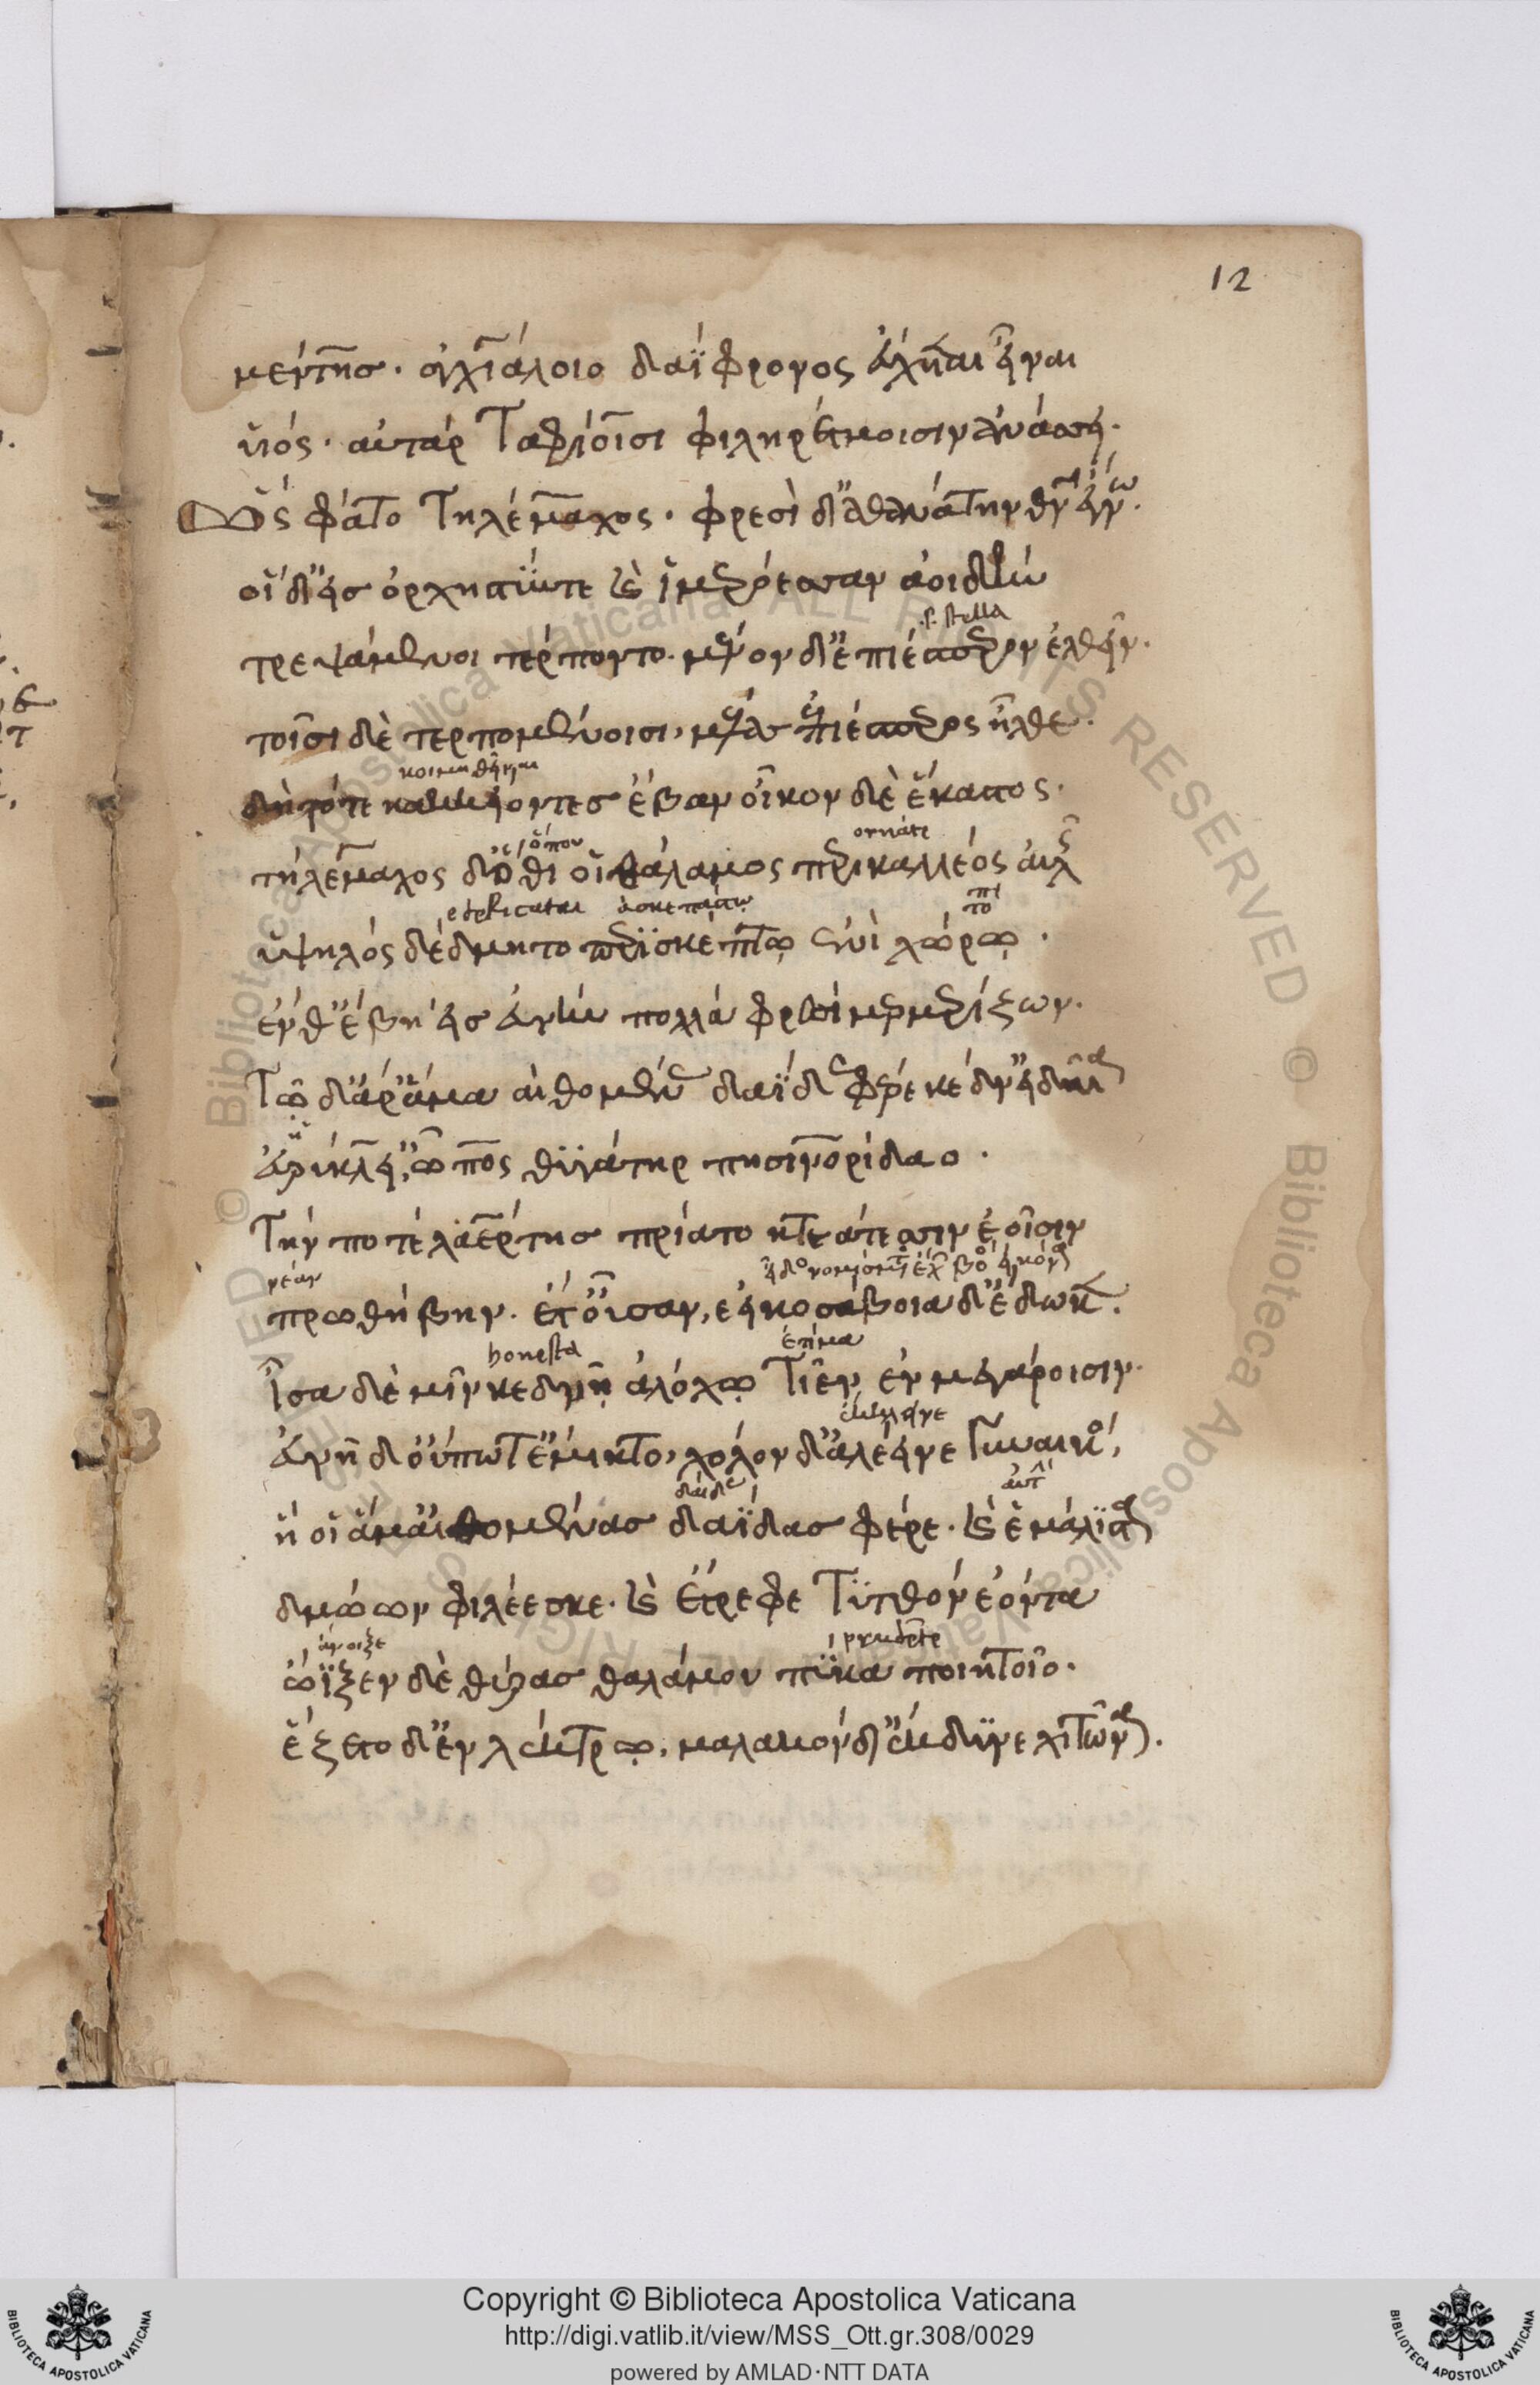 12
μέντης· ἀγχιάλοιο δαΐφρονος εὔχεται εἶναι
υἱός· αὐτάρ Ταφίοισι φιληρέτμοισιν ἀνάσσει·
Ὣς φάτο Τηλέμαχος· φρεσὶ δ' ἀθανάτην θεὸν ἔγνω.
οἵ δ' εἰς ὀρχηστύν τε καὶ ἱμερόεσσαν ἀοιδήν
.s. stella
τρεψάμενοι τέρποντο· μένον δ' ἐπι ἕσπερον ἐλθεῖν·
τοῖσι δὲ τερπομένοισι, μέλας ἐπι ἕσπερος ἦλθε·
κοιμηθῆναι
δὴ τότε κακκείοντες ἔβαν οἶκον δὲ ἕκαστος·
ὅπου ornate
τηλέμαχος δ' ὅθι οἱ θάλαμος περικαλλέος αὐλῆς
edificatai
ὑψηλός δέδμητο περισκέπτῳ ἐνὶ χώρῳ·
ἔνθ' ἔβη εἰς εὐνήν πολλά φρεσί μερμηρίζων·
Τῷ δ' ἄρ' ἅμα αἰθομένας δαΐδας φέρε κεδν' εἰδυῖα
Εὐρύκλει', ὦπος θυγάτηρ πεισηνορίδαο·
Τήν ποτε λαέρτης πρίατο κτεάτεσσιν ἑοῖσιν
νέαν
πρωθήβην· ἔτ' ἐοῦσαν, ἐεικοσάβοια δ' ἔδωκεν·
honesta ἐτίμα
ἶσα δὲ μιν κεδνῇ ἀλόχῳ Τῖεν ἐν μεγάροισιν·
εὐνῇ δ' οὔποτ' ἔμικτο, χόλον δ' ἀλέεινε Γυναικός,
ἥ οἱ ἅμ' αἰθομένας δαΐδας φέρε· καὶ ἑ μάλιστα
δμωάων φιλέεσκε· καὶ ἔτρεφε Τυτθόν ἐόντα
ἄνοιξε prudēte
ὤϊξεν δὲ θύρας θαλάμου πύκα ποιητοῖο·
ἕζετο δ' ἐν λέκτρῳ, μαλακόν δ' ἔκδυνε χιτῶνα·
Copyright © Biblioteca Apostolica Vaticana
http://digi.vatlib.it/view/MSS_Ott.gr.308/0029
powered by AMLAD·NTT DATA
BIBLIOTECA APOSTOLICA VATICANA
BIBLIOTECA APOSTOLICA VATICANA